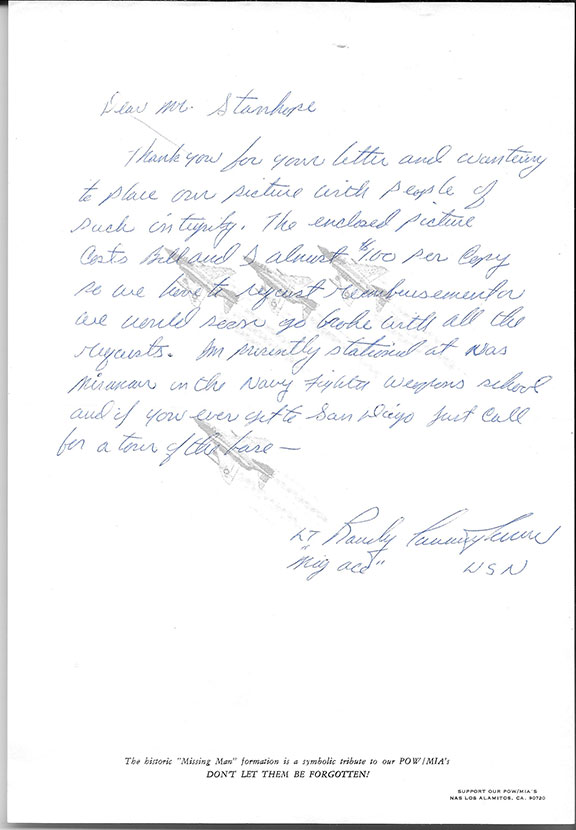 Dear Mr. Stanhope
Thank you for your letter and wanteing
to place our picture with people of
such intregity. The enclosed picture
Costs Bill and I almost $1.00 per copy
so we have to request reimbursement or
we would soon go broke with all the
requests. Im presently stationed at Nas
Miramar in the Navy Fighter Weapons School
and if you ever get to San Diego just call
for a tour of the base —
LT Randy Cunningham
"Mig ace" USN
The historic "Missing Man" formation is a symbolic tribute to our POW/MIA's
DON'T LET THEM BE FORGOTTEN!
SUPPORT OUR POW/MIA'S
NAS LOS ALAMITOS, CA. 90720